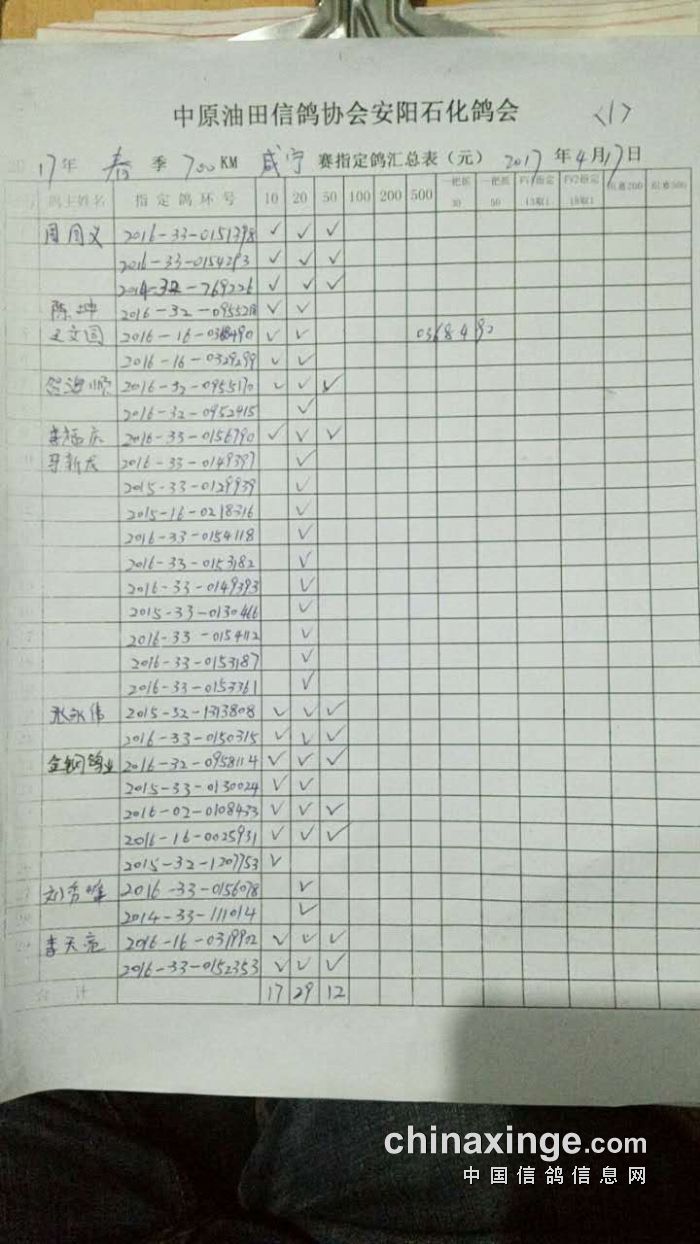 中原油田信鸽协会安阳石化鸽会 <1>
17年 春 季 700KM 咸宁 赛指定鸽汇总表(元) 2017年4月17日
鸽主姓名 指定鸽环号 10 20 50 100 200 500 一把抓30 一把抓50
周同义 2016-33-0151398 ✓ ✓ ✓
2016-33-0154293 ✓ ✓ ✓
2014-32-769226 ✓ ✓ ✓
陈坤 2016-32-0955218 ✓ ✓
王文国 2016-16-0368490 ✓ ✓ 0368490
2016-16-0329299 ✓ ✓
贺海顺 2016-32-0955170 ✓ ✓ ✓
2016-32-0952415 ✓
李福庆 2016-33-0156790 ✓ ✓ ✓
马新成 2016-33-0149397 ✓
2015-33-0129939 ✓
2015-16-0218316 ✓
2016-33-0154118 ✓
2016-33-0153182 ✓
2016-33-0149393 ✓
2015-33-0130466 ✓
2016-33-0154112 ✓
2016-33-0153187 ✓
2016-33-0153361 ✓
张永伟 2015-32-1313808 ✓ ✓ ✓
2016-33-0150315 ✓ ✓ ✓
金钢鸽业 2016-32-0958114 ✓ ✓ ✓
2015-33-0130024 ✓ ✓
2016-02-0108433 ✓ ✓ ✓
2016-16-0025931 ✓ ✓ ✓
2015-32-1207753 ✓
刘秀峰 2016-33-0156078 ✓
2014-33-111014 ✓
李天亮 2016-16-0319902 ✓ ✓ ✓
2016-33-0152353 ✓ ✓ ✓
合计 17 29 12
chinaxinge.com
中国信鸽信息网